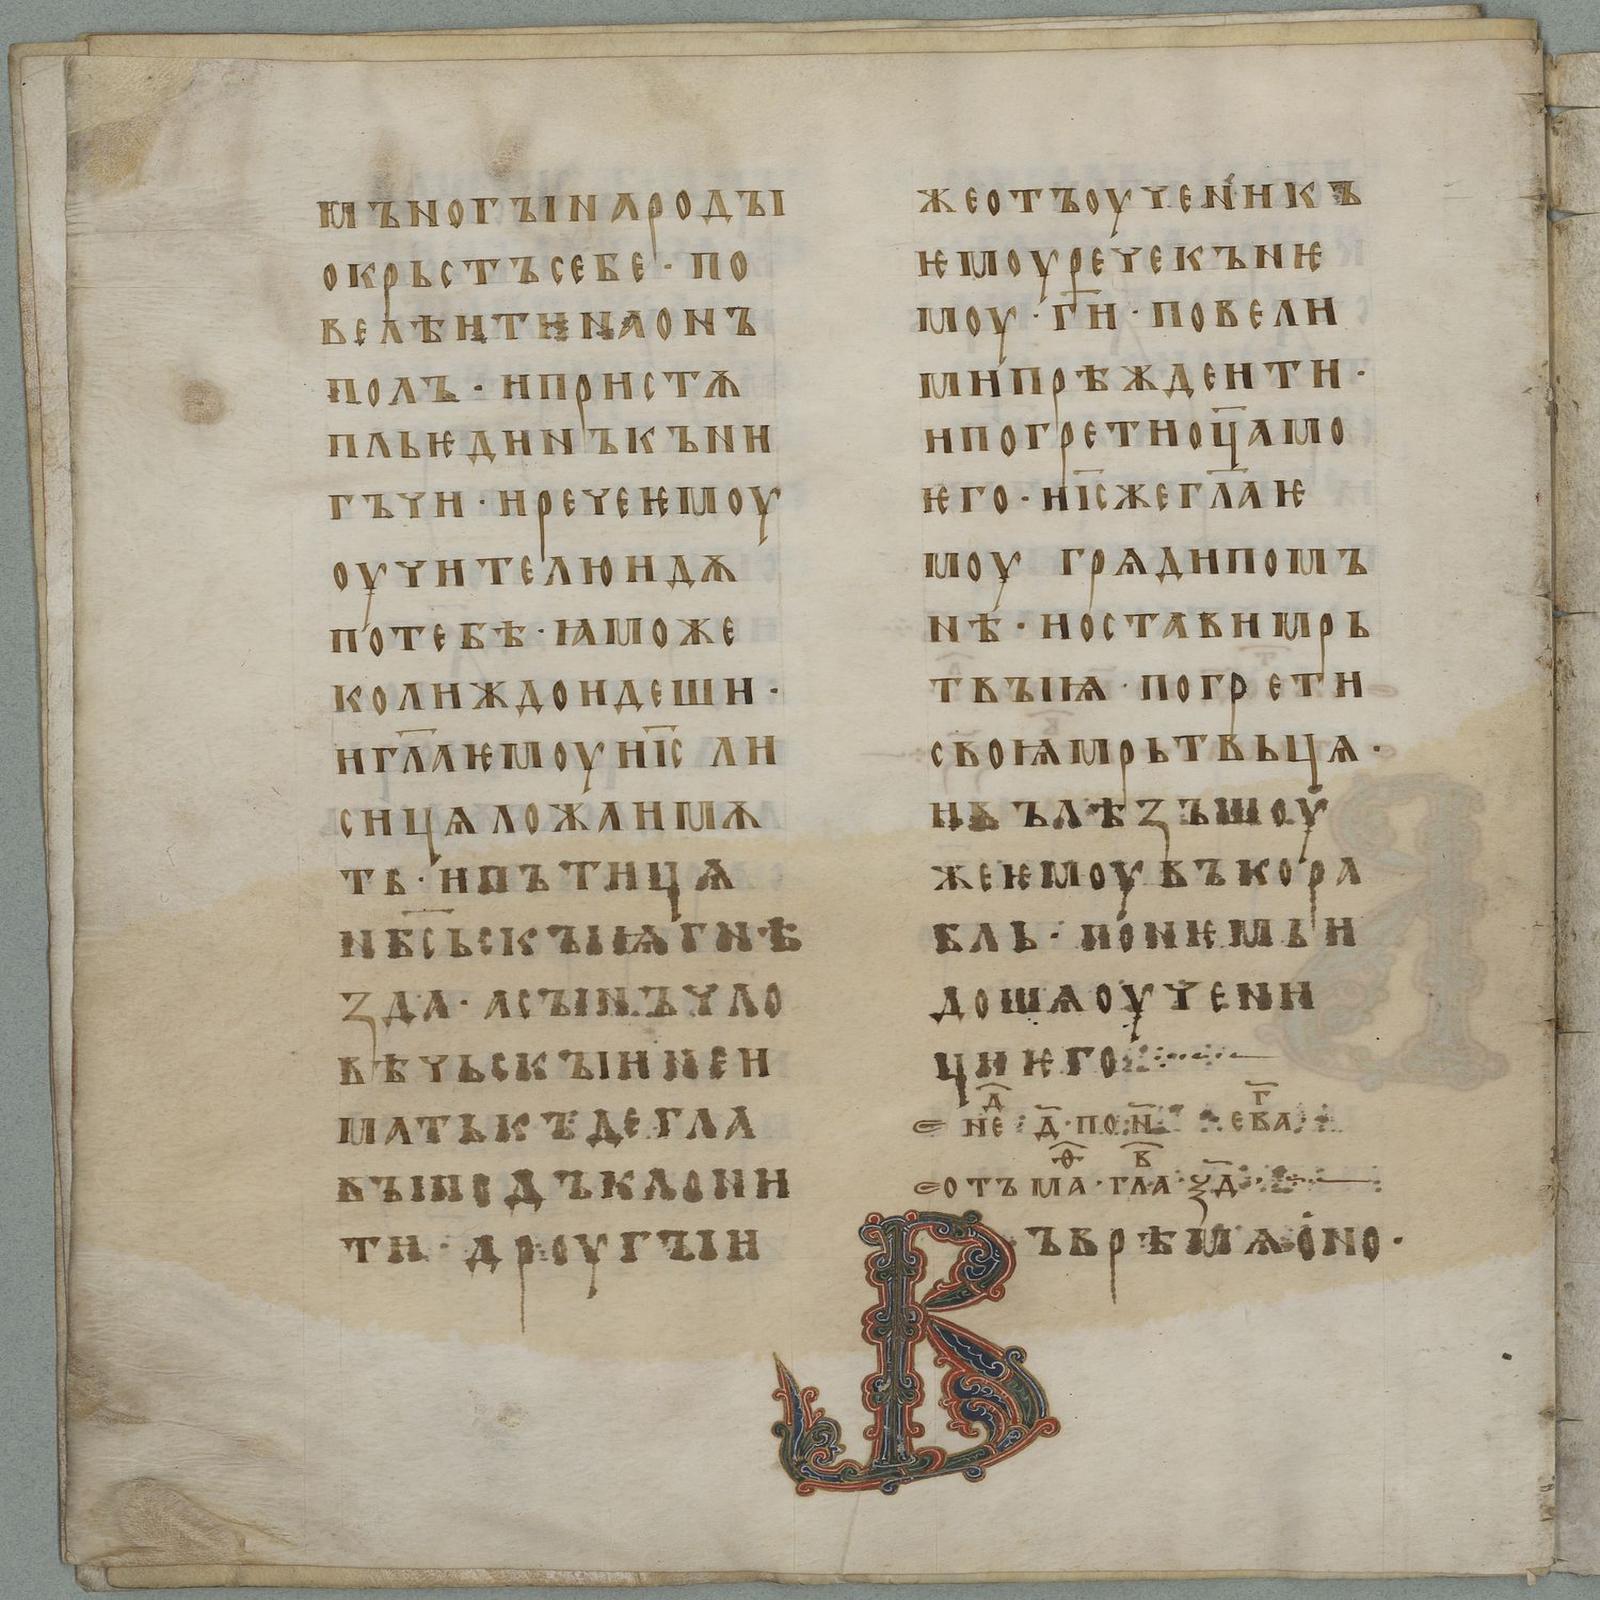 мъногꙑинароды
окрьстъсебе · по
велѣитинаонъ
полъ · ипристѫ
пльѥдинъкъни
гъчи · иречеѥмоу
оучителюидѫ
потебѣ · ꙗможе
колижьдоидеши ·
игл҃аѥмоуиі҃с ли
сицѧложаимѫ
тъ · ипътицѧ
нб҃сьскꙑѩгнѣ
зда · асꙑнъчло
вѣчьскꙑинеи
матькъдегла
вꙑподъклони
ти · дроугꙑи
жеотъоученикъ
ѥмоуречекънѥ
моу · г҃и · повели
мипрѣждеити ·
ипогретиоц҃амо
ѥго · иі҃сжегл҃аѥ
моу грѧдипомъ
нѣ · иоставимрь
твꙑѩ · погрети
своѩмрьтвьцѧ ·
ивълѣзъшоу
жеѥмоувъкора
бль · понемьи
дошѧоучени
циѥго
не д҃ · д҃ · пон҃ ева г҃
отъ ма · ѳ҃ · гла в҃ · за
Въврѣмѧоно ·